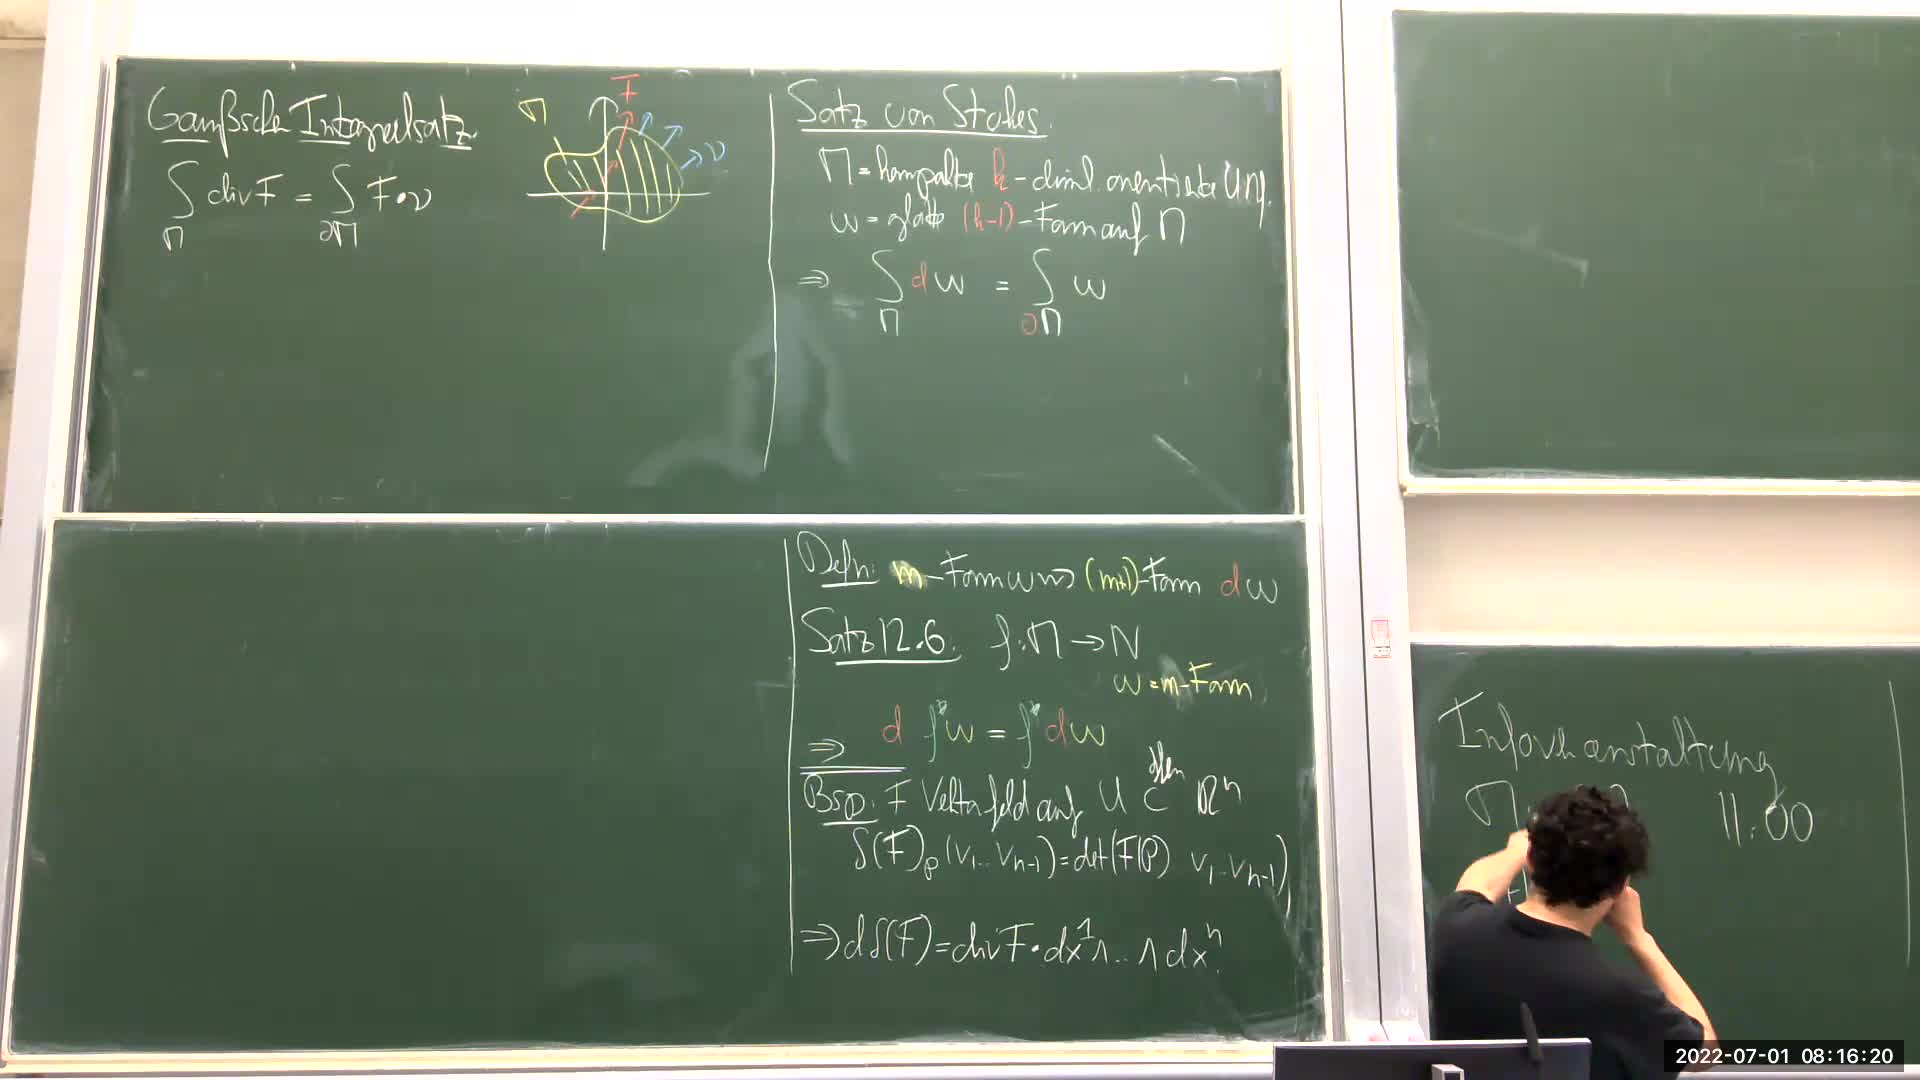 Gaußscher Integralsatz.
∫_M div F = ∫_∂M F•ν
M
F
ν
Satz von Stokes.
M = kompakte k-diml. orientierte UM.
ω = glatte (k-1)-Form auf M
⇒ ∫_M dω = ∫_∂M ω
Defn: m-Form ω ⇝ (m+1)-Form dω
Satz 12.6. f: M → N
ω = m-Form
⇒ d f*ω = f* dω
Bsp. F Vektorfeld auf U ⊂ ℝⁿ
offen
δ(F)_p (v₁…v_{n-1}) = det(F(p) v₁…v_{n-1})
⇒ dδ(F) = div F · dx¹∧…∧dxⁿ.
Infoveranstaltung
11:00
2022-07-01 08:16:20